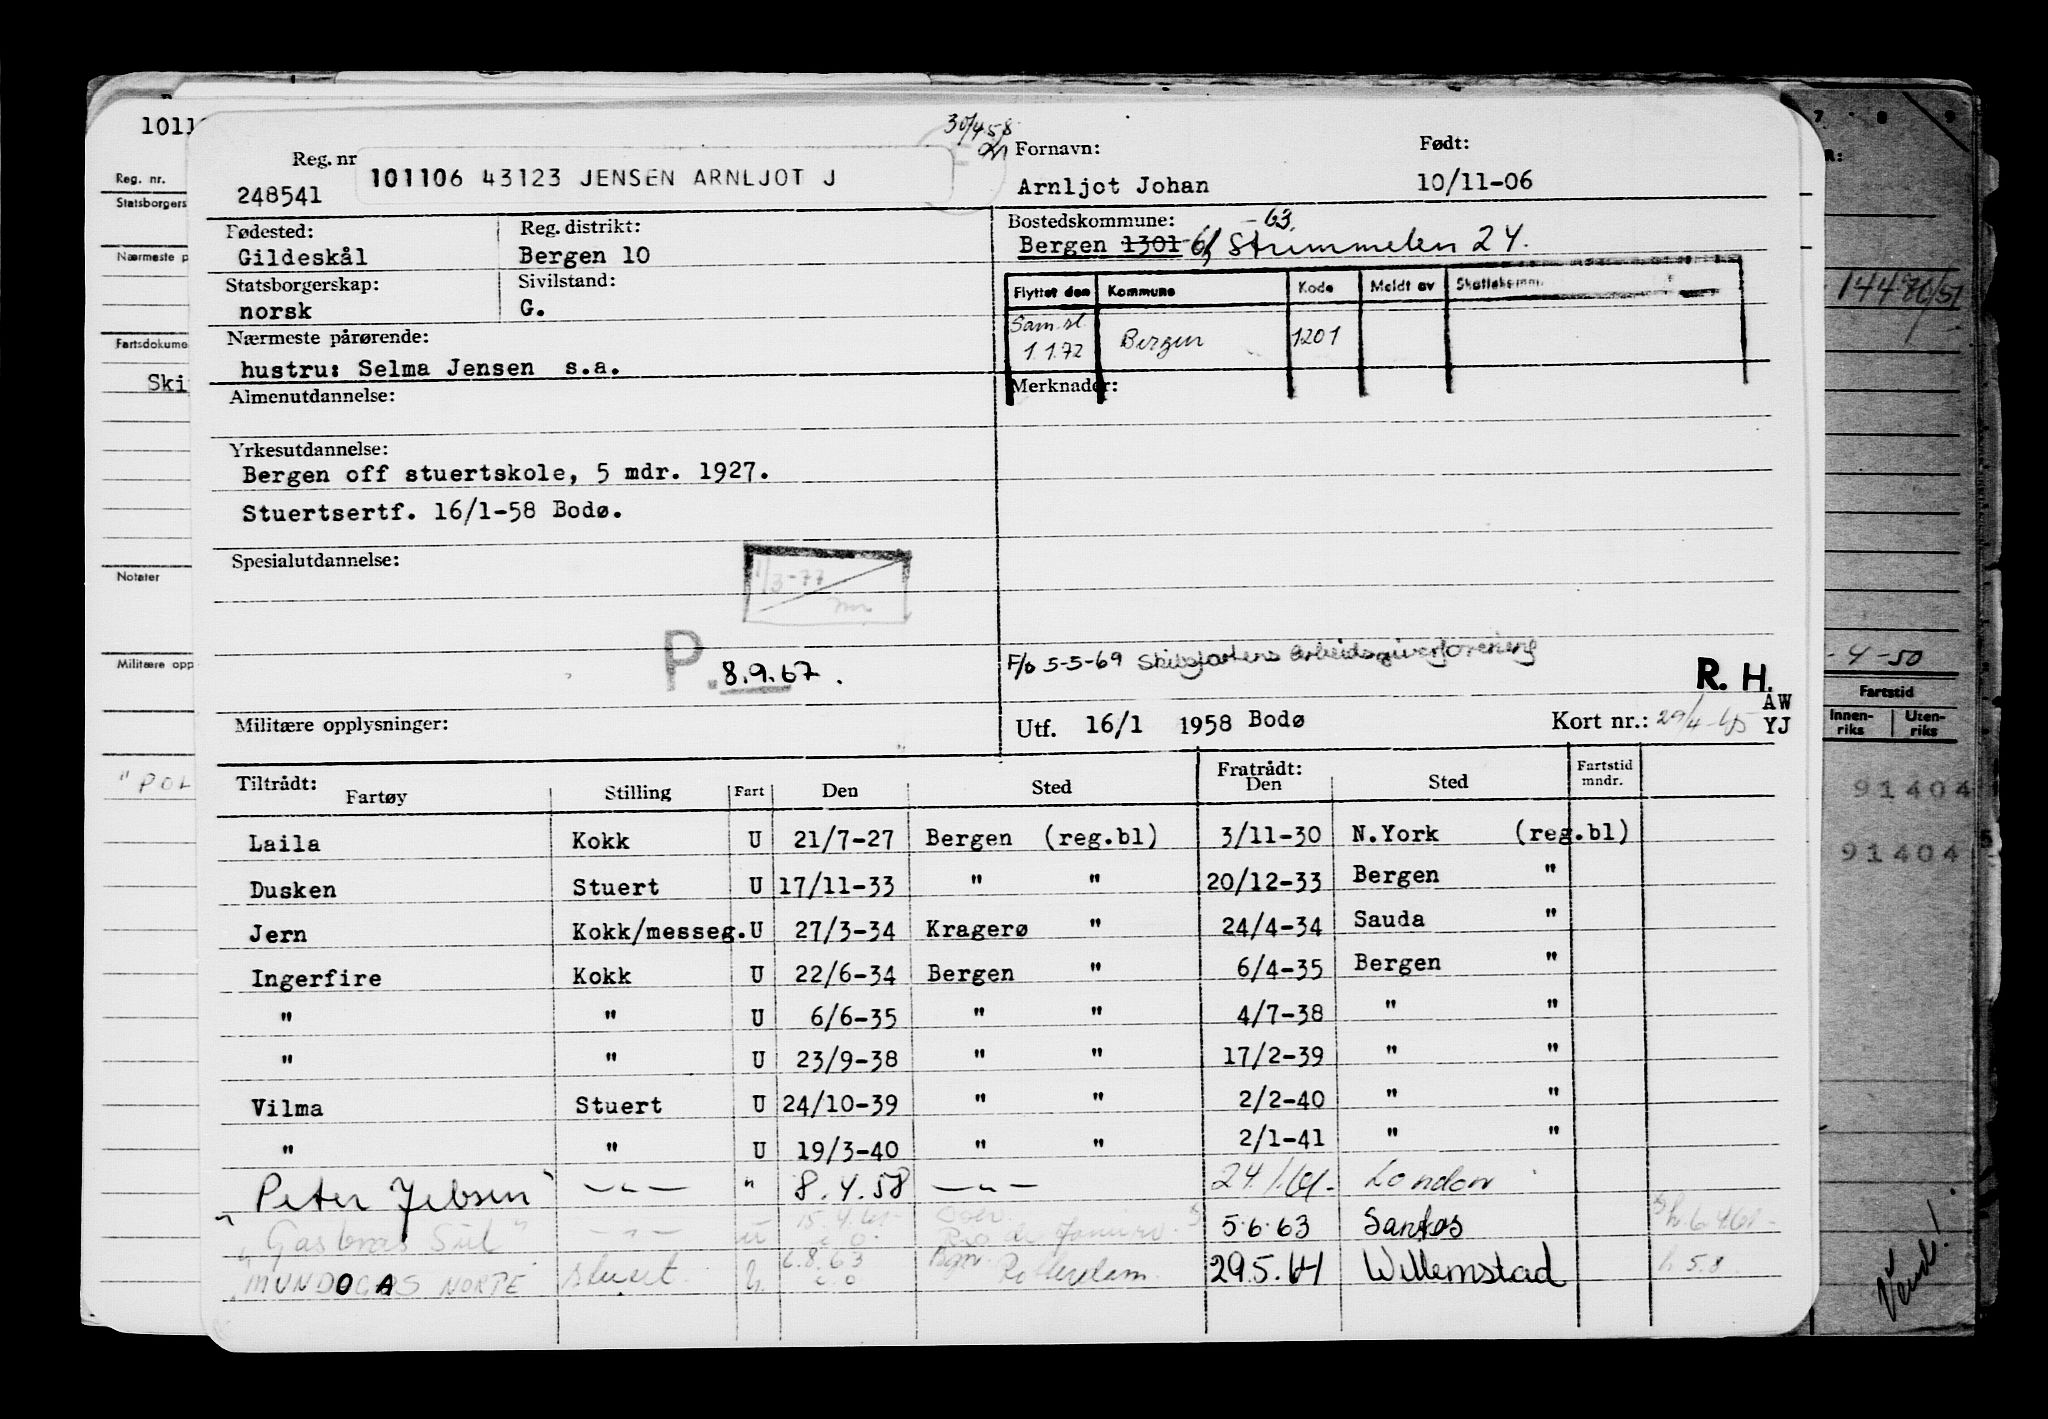 30/4 58
Reg. nr 101106 43123 JENSEN ARNLJOT J
248541
Fornavn: Født:
Arnljot Johan 10/11-06
Fødested: Reg. distrikt:
Gildeskål Bergen 10
Bostedskommune: -63.
Bergen 1301 Strimmelen 24.
Statsborgerskap: Sivilstand:
norsk G.
Flyttet den Kommune Kode Meldt av
Sam.sl. 1.1.72 Bergen 1201
Nærmeste pårørende:
hustru: Selma Jensen s.a.
Merknader:
Almenutdannelse:
Yrkesutdannelse:
Bergen off stuertskole, 5 mdr. 1927.
Stuertsertf. 16/1-58 Bodø.
Spesialutdannelse:
1/3-77
P. 8.9.67.
F/o 5-5-69 Skibsfartens Arbeidsgiverforening
R. H.
AW
Militære opplysninger:
Utf. 16/1 1958 Bodø Kort nr.: 29/4-65 YJ
Tiltrådt: Fratrådt:
Fartøy Stilling Fart Den Sted Den Sted Fartstid mndr.
Laila Kokk U 21/7-27 Bergen (reg.bl) 3/11-30 N.York (reg.bl)
Dusken Stuert U 17/11-33 " " 20/12-33 Bergen "
Jern Kokk/messeg. U 27/3-34 Kragerø " 24/4-34 Sauda "
Ingerfire Kokk U 22/6-34 Bergen " 6/4-35 Bergen "
" " U 6/6-35 " " 4/7-38 " "
" " U 23/9-38 " " 17/2-39 " "
Vilma Stuert U 24/10-39 " " 2/2-40 " "
" " U 19/3-40 " " 2/1-41 " "
Peter Jebsen — " — " 8.4.58 — " — 24.1.61- London
"Gasbras Sul" — " — 15.4.61- Rio de Janeiro 5.6.63 Santos
"MUNDOGAS NORTE stuert 6.8.63 Rotterdam 29.5.64 Willemstad h 5.8.
1011
Reg. nr.
Statsborgers
Nærmeste p
Fartsdokume
Ski
Notater
Militære opp
"POL
7 8 9
R:
14476/51
-4-50
Fartstid
Innen-riks Uten-riks
91404
91404
Vend!